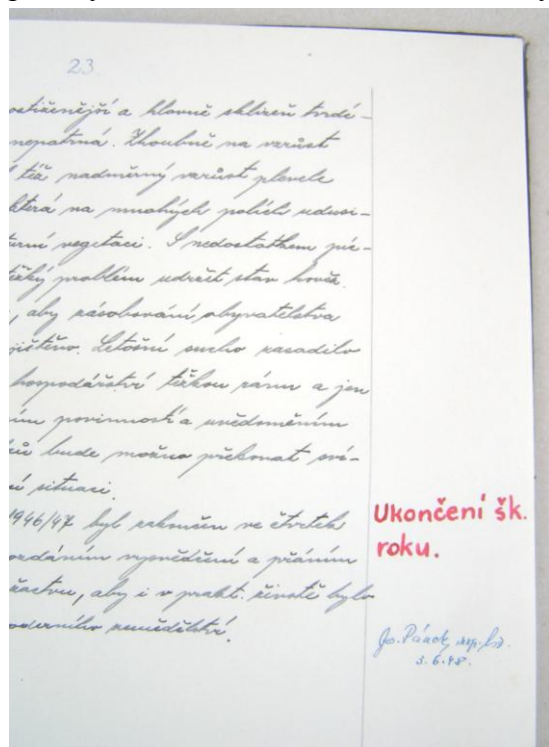 23.
a hlavně sklizeň tvrdé-
nepatrná. Zhoubně na vzrůst
též nadměrný vzrůst plevele
která na mnohých polích udusi-
vegetaci. S nedostatkem píc-
těžký problém udržet stav hověz.
, aby zásobování obyvatelstva
jištěno. Letošní sucho zasadilo
hospodářství těžkou ránu a jen
ním povinností a uvědoměním
ků bude možno překonat
ní situaci.
1946/47 byl zakončen ve čtvrtek
rozdáním vysvědčení a přáním
žactvu, aby i v prakt. životě bylo
moderního zemědělství.
Ukončení šk.
roku.
3.6.48.